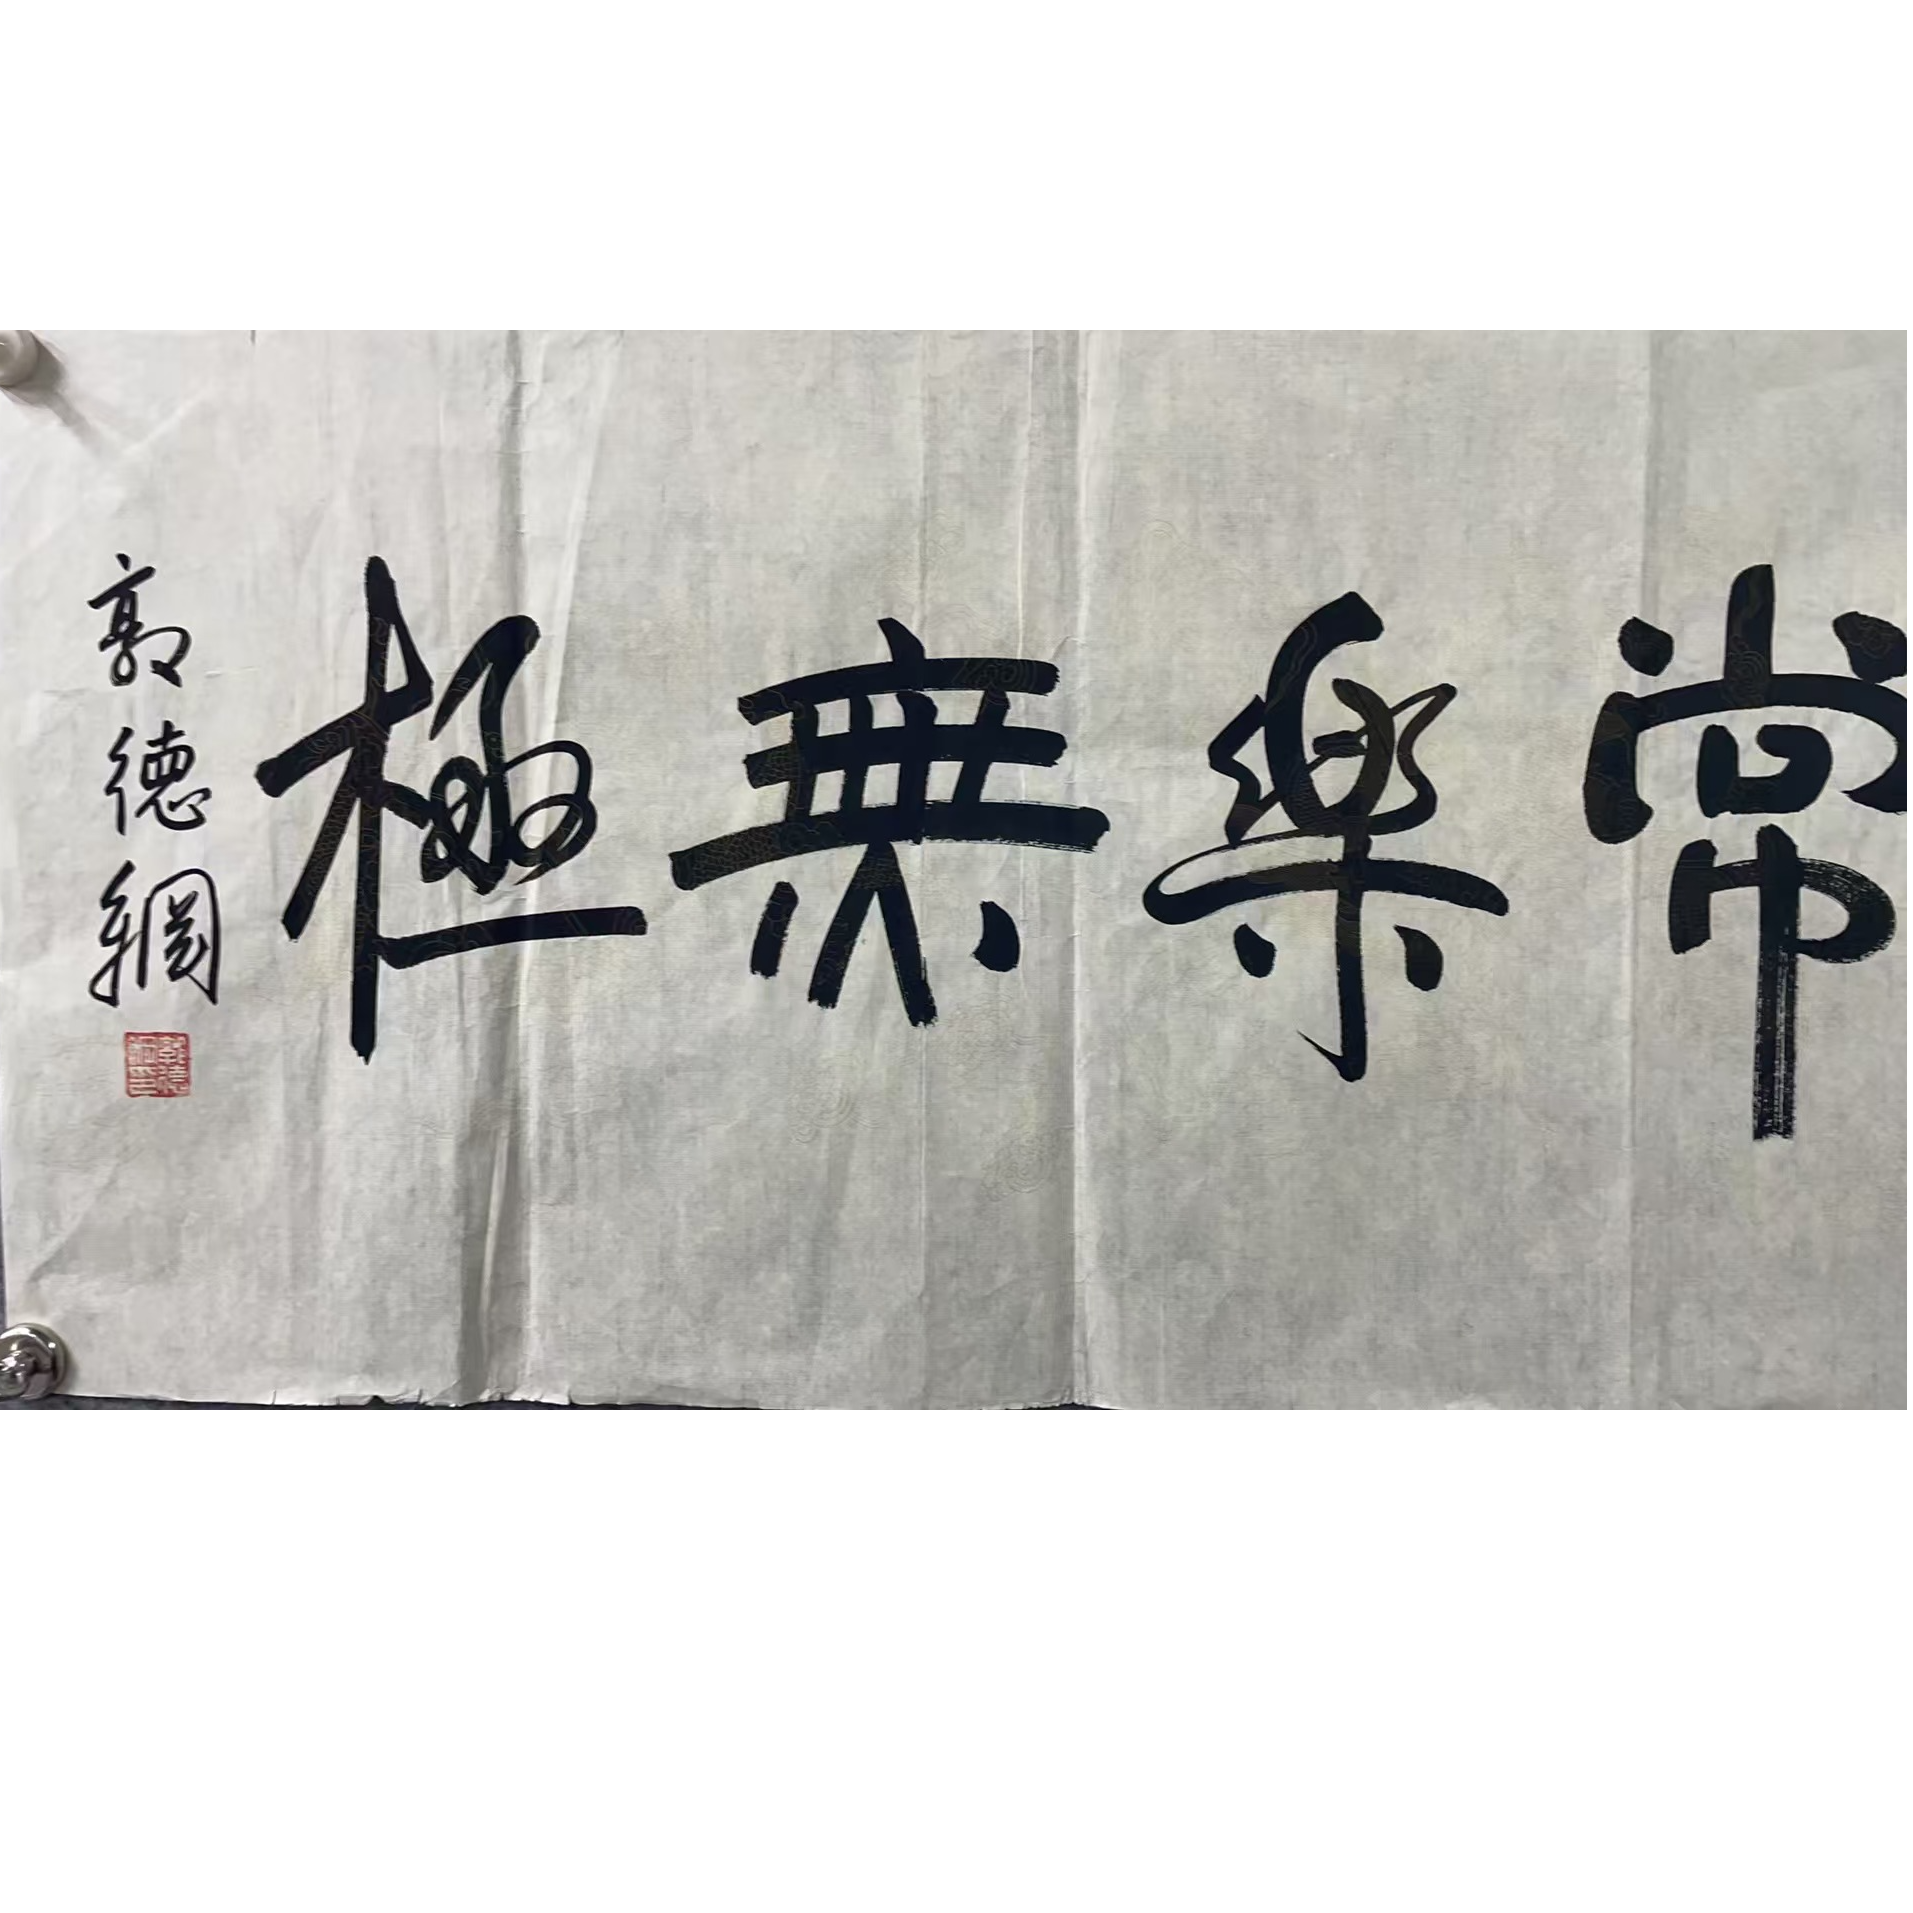 常樂無極
郭德綱